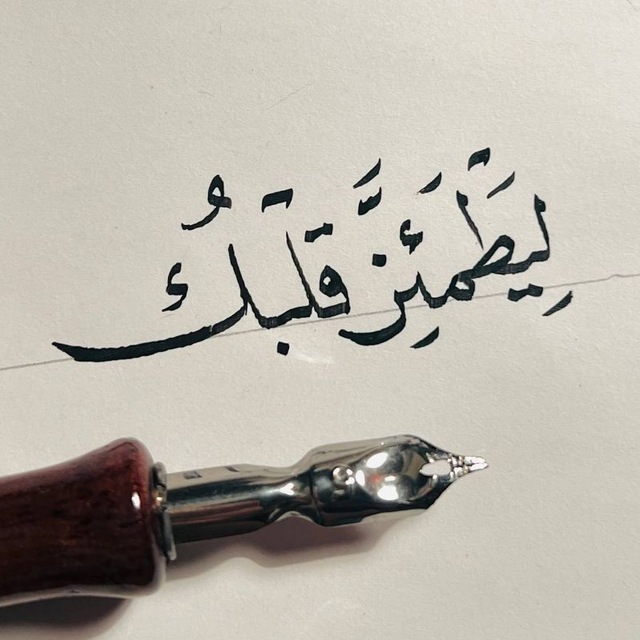 لِيَطْمَئِنَّ قَلْبُكَ